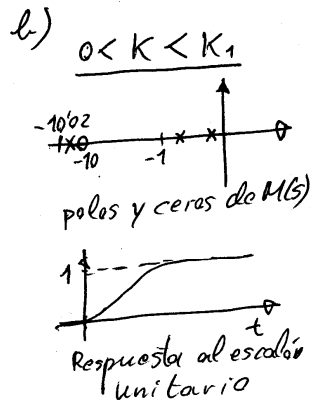 b)
0 < K < K₁
-10'02
-10
-1
polos y ceros de M(s)
1
t
Respuesta al escalón
unitario